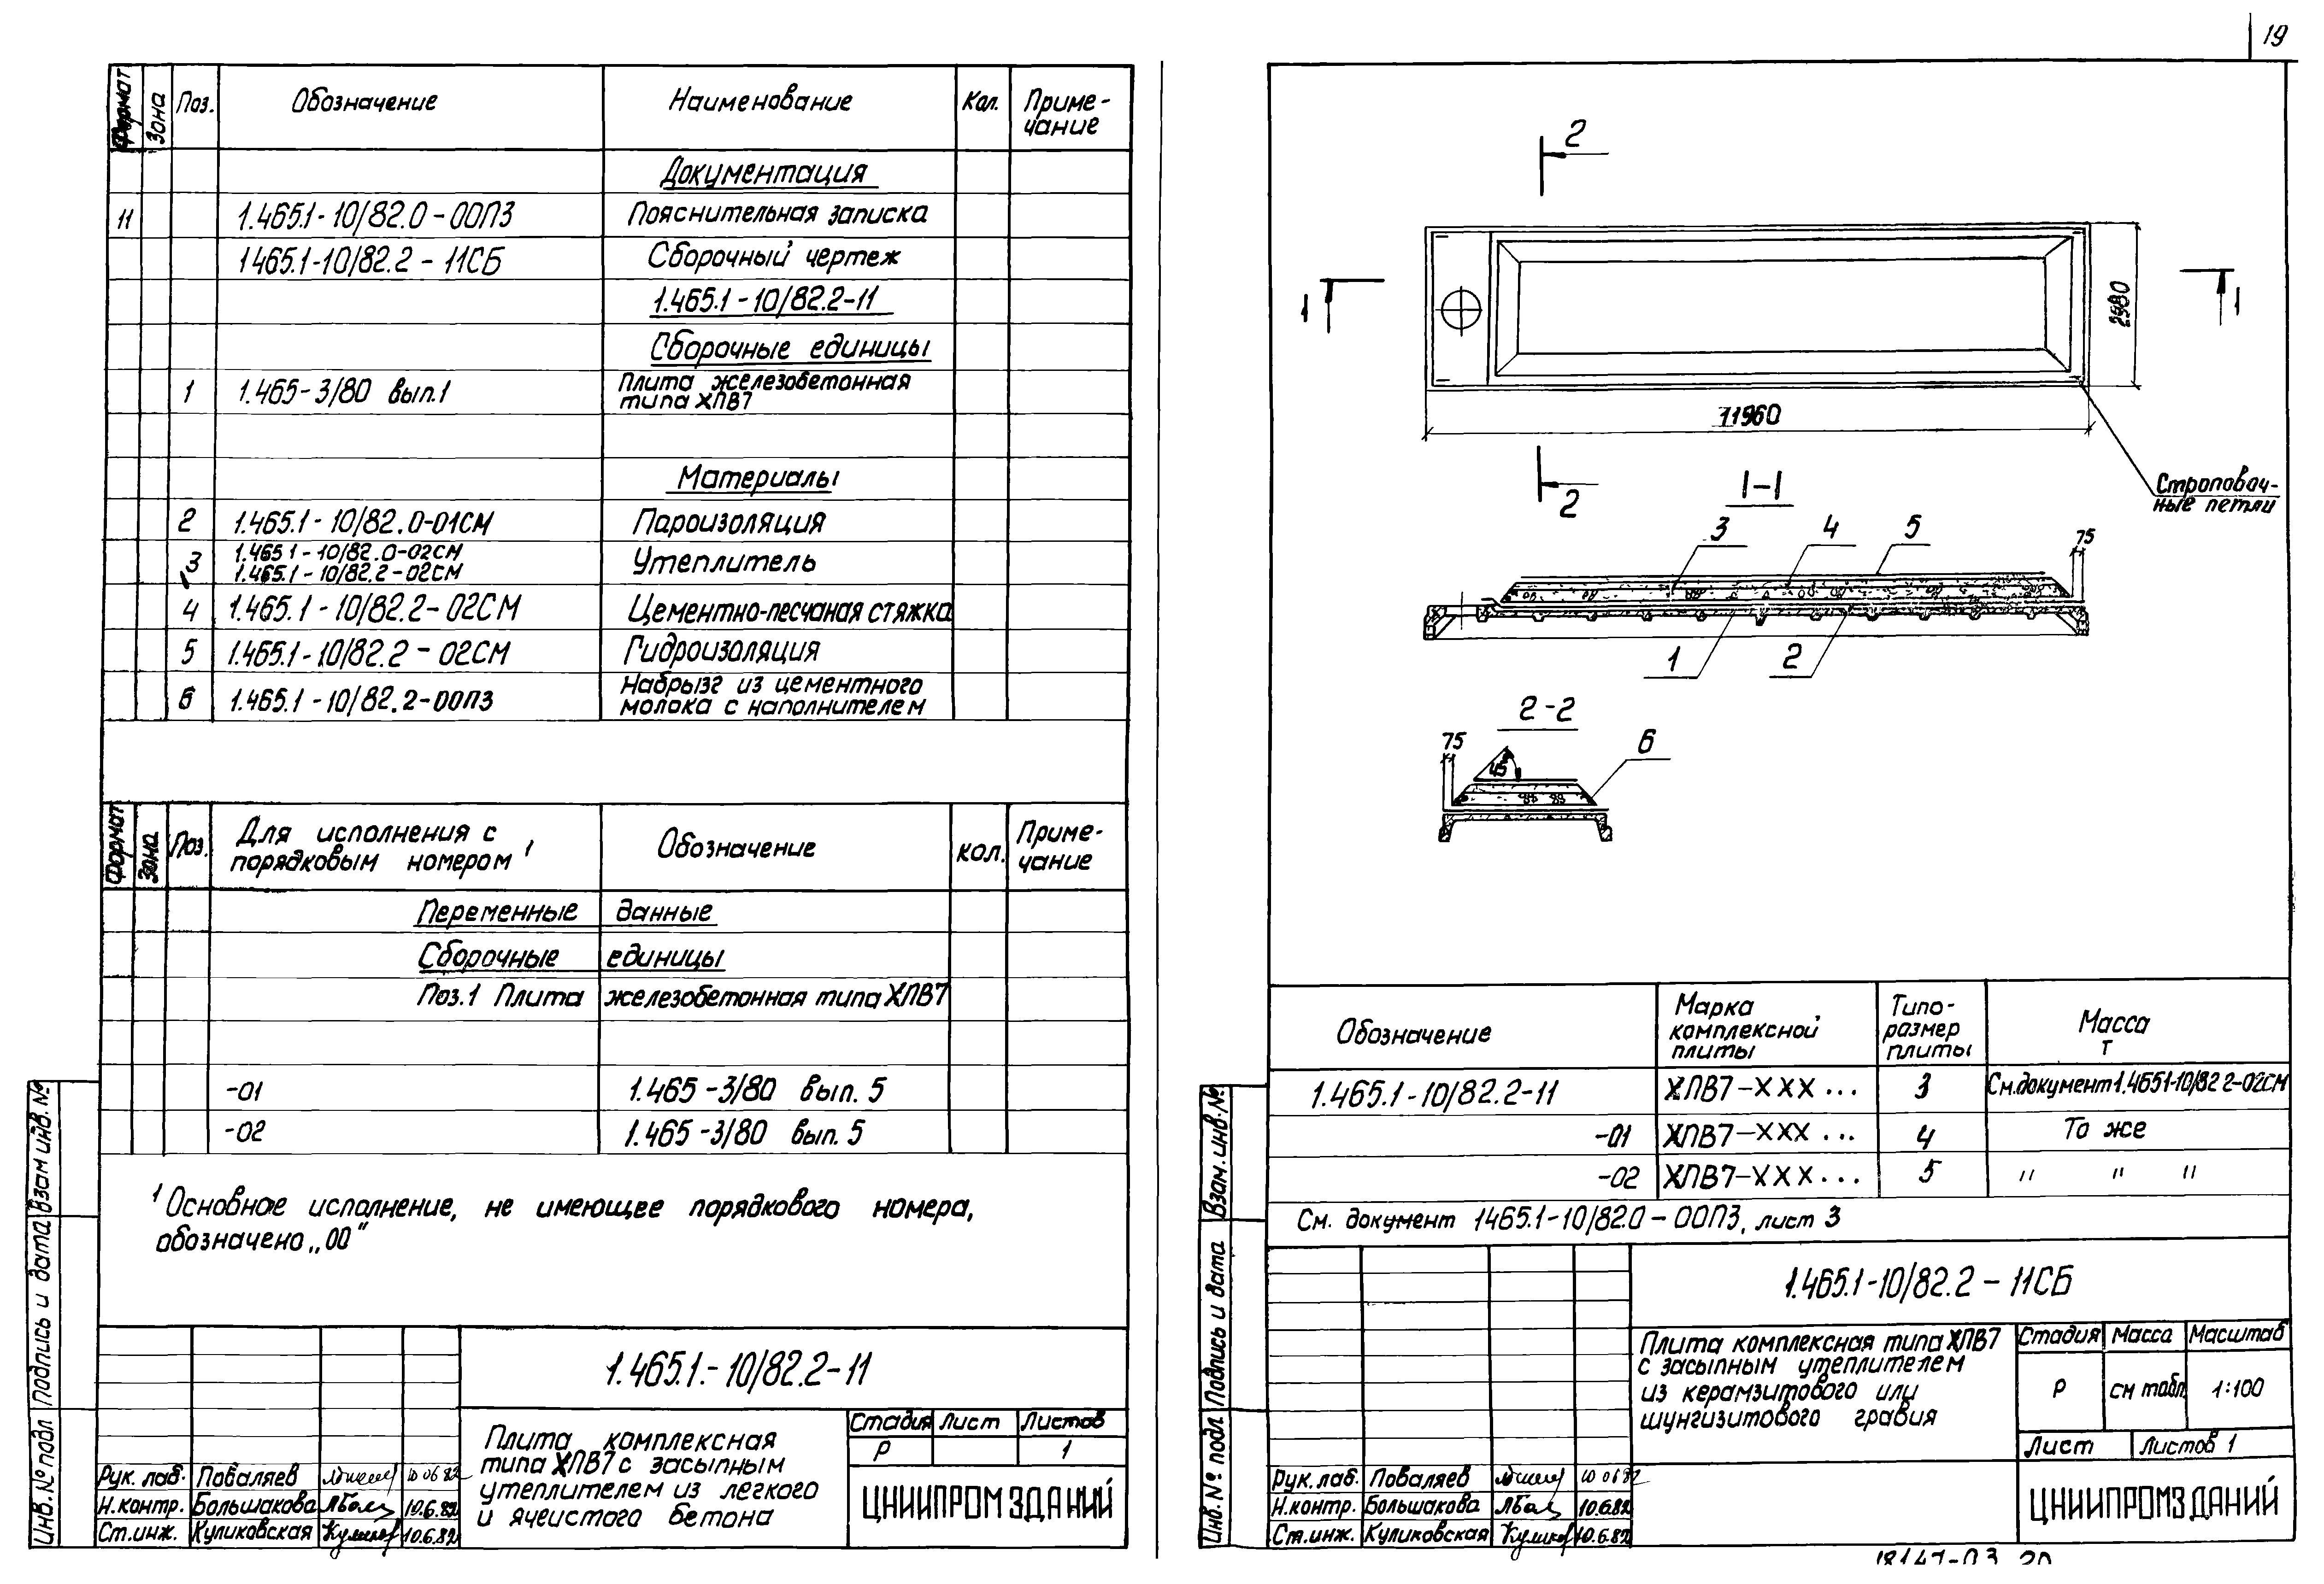 19
Формат Зона Поз. Обозначение Наименование Кол. Приме-
чание
Документация
11 1.465.1-10/82.0-00ПЗ Пояснительная записка
1465.1-10/82.2-11СБ Сборочный чертеж
1.465.1-10/82.2-11
Сборочные единицы
1 1.465-3/80 вып.1 Плита железобетонная
типа ХПВ7
Материалы
2 1.465.1-10/82.0-01СМ Пароизоляция
3 1.465 1-10/82.0-02СМ Утеплитель
1.465.1-10/82.2-02СМ
4 1.465.1-10/82.2-02СМ Цементно-песчаная стяжка
5 1.465.1-10/82.2-02СМ Гидроизоляция
6 1.465.1-10/82.2-00ПЗ Набрызг из цементного
молока с наполнителем
Формат Зона Поз. Для исполнения с
порядковым номером 1 Обозначение кол. Приме-
чание
Переменные данные
Сборочные единицы
Поз.1 Плита железобетонная типа ХПВ7
-01 1.465-3/80 вып. 5
-02 1.465-3/80 вып. 5
1 Основное исполнение, не имеющее порядкового номера,
обозначено „00"
Инв. № подл Подпись и дата Взам инв. №
1.465.1.-10/82.2-11
Плита комплексная
типа ХПВ7 с засыпным
утеплителем из легкого
и ячеистого бетона
Стадия Лист Листов
Р 1
ЦНИИПРОМЗДАНИЙ
Рук. лаб. Поваляев 10 06 82
Н.контр. Большакова 10.6.82
Ст.инж. Куликовская 10.6.82
2
1 1
2980
11960
2
Строповоч-
ные петли
1-1
3 4 5 75
1 2
2-2
75 45° 6
Обозначение Марка
комплексной
плиты Типо-
размер
плиты Масса
т
1.465.1-10/82.2-11 ХПВ7-ХХХ... 3 См.документ1.4651-10/82 2-02СМ
-01 ХПВ7-ХХХ... 4 То же
-02 ХПВ7-ХХХ... 5 " " "
См. документ 1465.1-10/82.0-00ПЗ, лист 3
Инв. № подл Подпись и дата Взам.инв.№
1.465.1-10/82.2-11СБ
Плита комплексная типа ХПВ7
с засыпным утеплителем
из керамзитового или
шунгизитового гравия
Стадия Масса Масштаб
Р см табл. 1:100
Лист Листов 1
ЦНИИПРОМЗДАНИЙ
Рук.лаб. Поваляев 10 06 82
Н.контр. Большакова 10.6.82
Ст.инж. Куликовская 10.6.82
18147-03 20